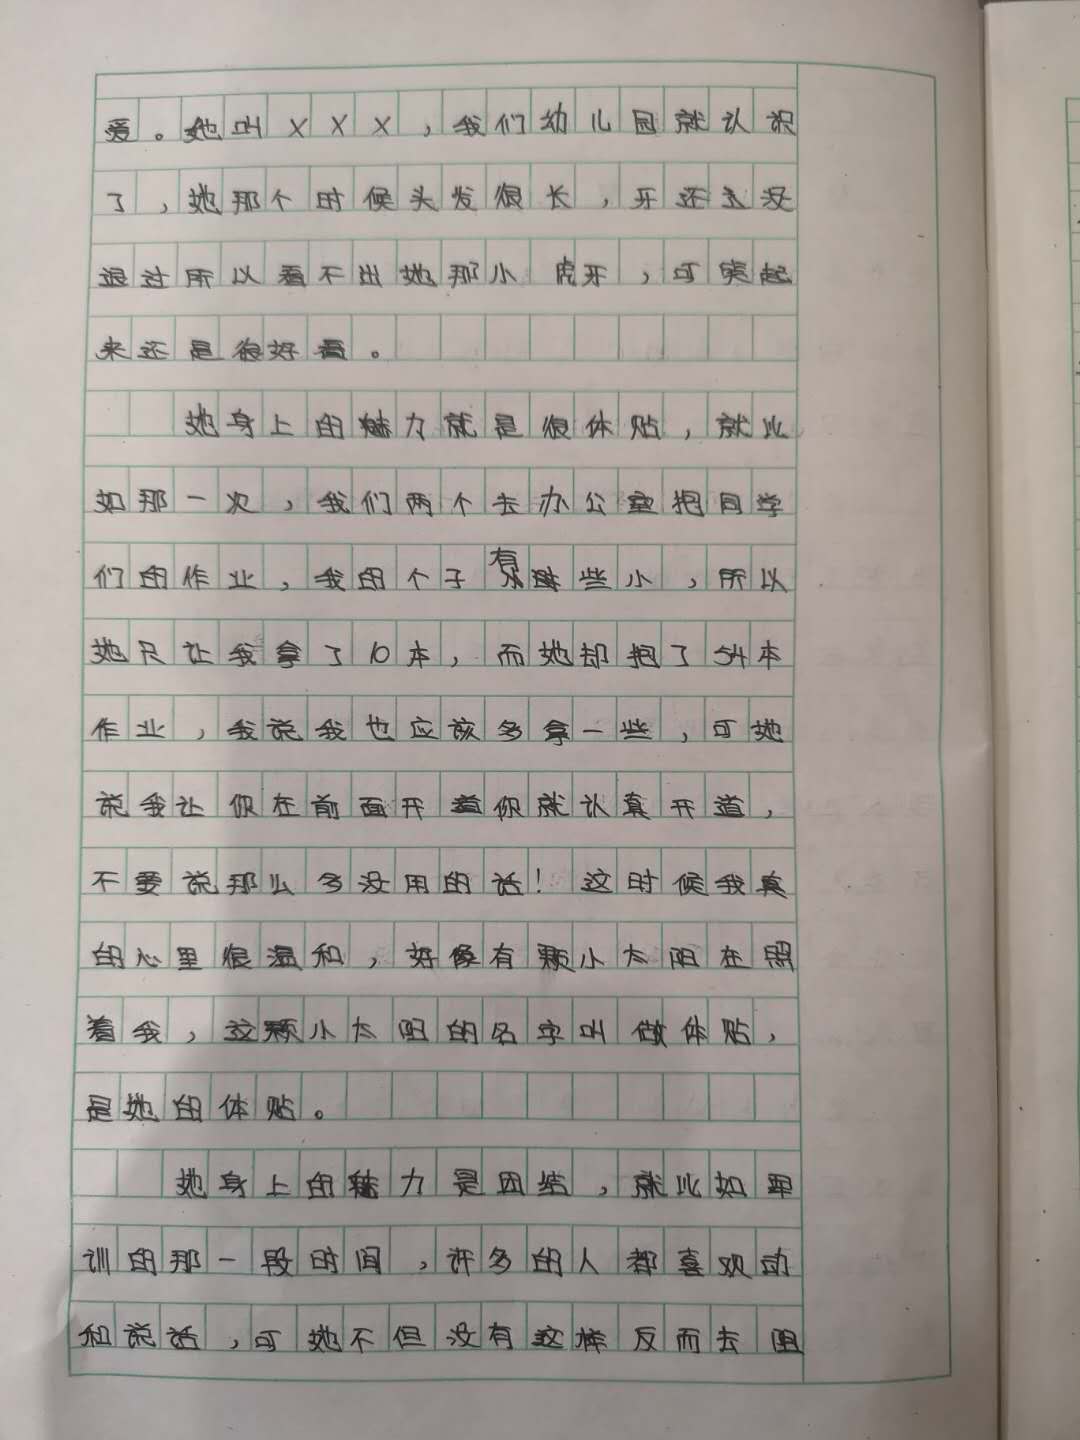 爱。她叫XXX，我们幼儿园就认识
了，她那个时候头发很长，牙还没
退过所以看不出她那小虎牙，可笑起
来还是很好看。
她身上的魅力就是很体贴，就比
如那一次，我们两个去办公室抱同学
们的作业，我的个子有些小，所以
她只让我拿了10本，而她却抱了54本
作业，我说我也应该多拿一些，可她
说我让你在前面开道你就认真开道，
不要说那么多没用的话！这时候我真
的心里很温和，好像有颗小太阳在照
着我，这颗小太阳的名字叫做体贴，
是她的体贴。
她身上的魅力是团结，就比如军
训的那一段时间，许多的人都喜欢动
和说话，可她不但没有这样反而去阻